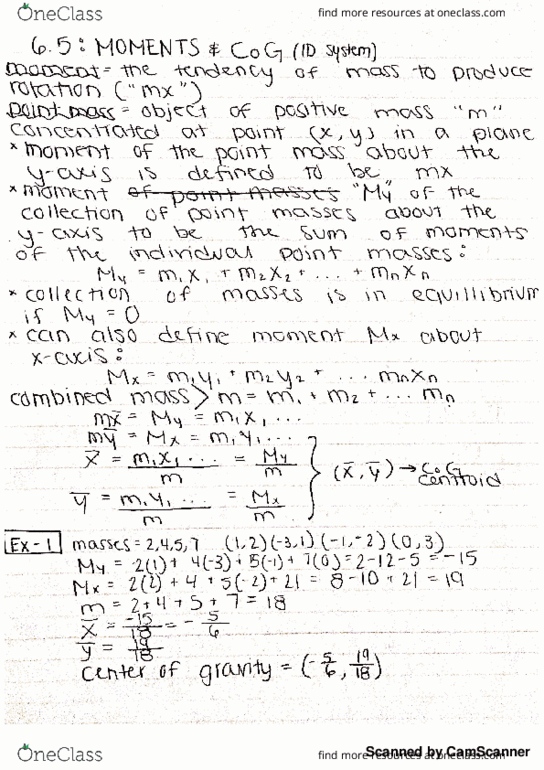 OneClass
find more resources at oneclass.com
6.5: MOMENTS & CoG (1D system)
moment = the tendency of mass to produce
rotation ("mx")
point mass = object of positive mass "m"
concentrated at point (x,y) in a plane
* moment of the point mass about the
y-axis is defined to be mx
* moment of point masses "My" of the
collection of point masses about the
y-axis to be the sum of moments
of the individual point masses:
My = m₁x₁ + m₂x₂ + ... + mₙxₙ
* collection of masses is in equillibrium
if My = 0
* can also define moment Mx about
x-axis:
Mx = m₁y₁ + m₂y₂ + ... mₙxₙ
combined mass > m = m₁ + m₂ + ... mₙ
mx̄ = My = m₁x₁ ...
mȳ = Mx = m₁y₁ ...
x̄ = m₁x₁ ... / m = My / m
(x̄, ȳ) → CoG
centroid
ȳ = m₁y₁ ... / m = Mx / m
Ex-1 masses = 2,4,5,7 (1,2)(-3,1)(-1,-2)(0,3)
My = 2(1) + 4(-3) + 5(-1) + 7(0) = 2-12-5 = -15
Mx = 2(2) + 4 + 5(-2) + 21 = 8-10+21 = 19
m = 2+4+5+7 = 18
x̄ = -15/18 = -5/6
ȳ = 19/18
center of gravity = (-5/6, 19/18)
OneClass
find more resources at oneclass.com
Scanned by CamScanner